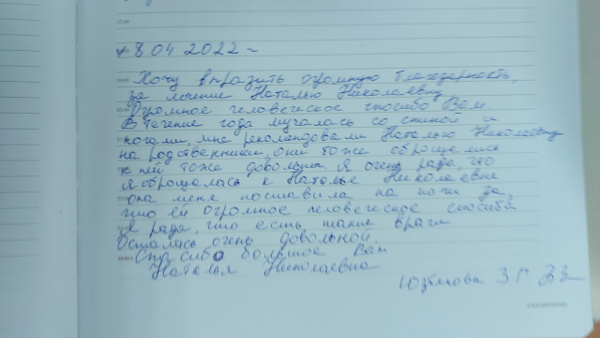 8.04 2022 ~
Хочу выразить огромную благодарность,
за лечение Наталью Николаевну
Огромное человеческое спасибо Вам.
В течение года мучалась со спиной и
ногами, мне рекомендовали Наталью Николаевну
на родственники, они тоже обращались
к ней тоже довольны. Я очень рада, что
я обращалась к Наталье Николаевне
она меня поставила на ноги да,
что ей огромное человеческое спасибо
Я рада, что есть такие врачи
Осталась очень довольной.
Спасибо большое Вам
Наталья Николаевна
З Г